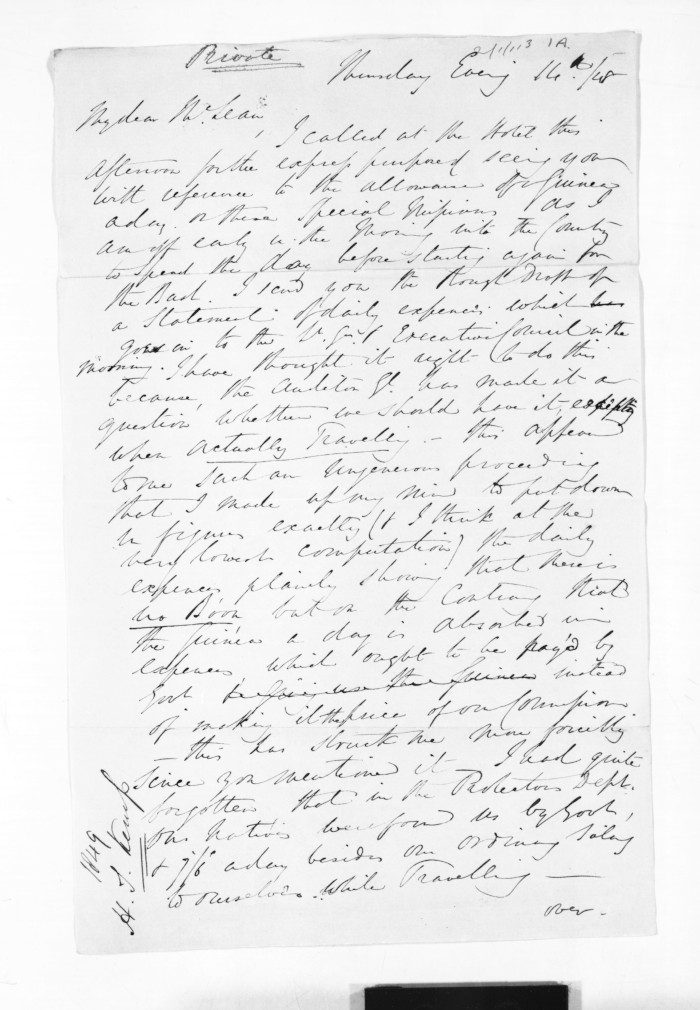 Private
Thursday Evening 14th/48
My dear McLean,
I called at the Hotel this
afternoon for the express purpose of seeing you
with reference to the allowance of a Guinea
a day on these Special Missions As I
am off early in the Morning into the Country
to spend the day before starting again for
the East. I send you the Rough Draft of
a Statement of daily expences which
goes in to the Executive Council in the
morning. I have thought it right to do this
because, the Auditor Gl. has made it a
question whether we should have it, excepting
when actually Travelling. - this appears
to me such an ungenerous proceeding
that I made up my mind to put down
in figures exactly (& I think at the
very lowest computation) the daily
expences, plainly showing that there is
no Boon but on the Contrary that
the guinea a day is absorbed in
expences which ought to be pay'd by
Govt to give us the Guinea instead
of making it the price of our
- this has struck me more forcibly
since you mentioned it - I had quite
forgotten that in the Protectors Dept.
our natives were found us by Govt,
& 7/6 a day besides our ordinary Salary
to ourselves while Travelling -
over.
1849
H. T. Kemp